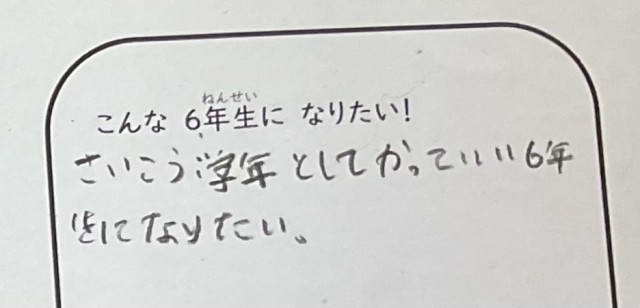 こんな 6年生に なりたい!
さいこう学年としてかっていい6年
生になりたい。